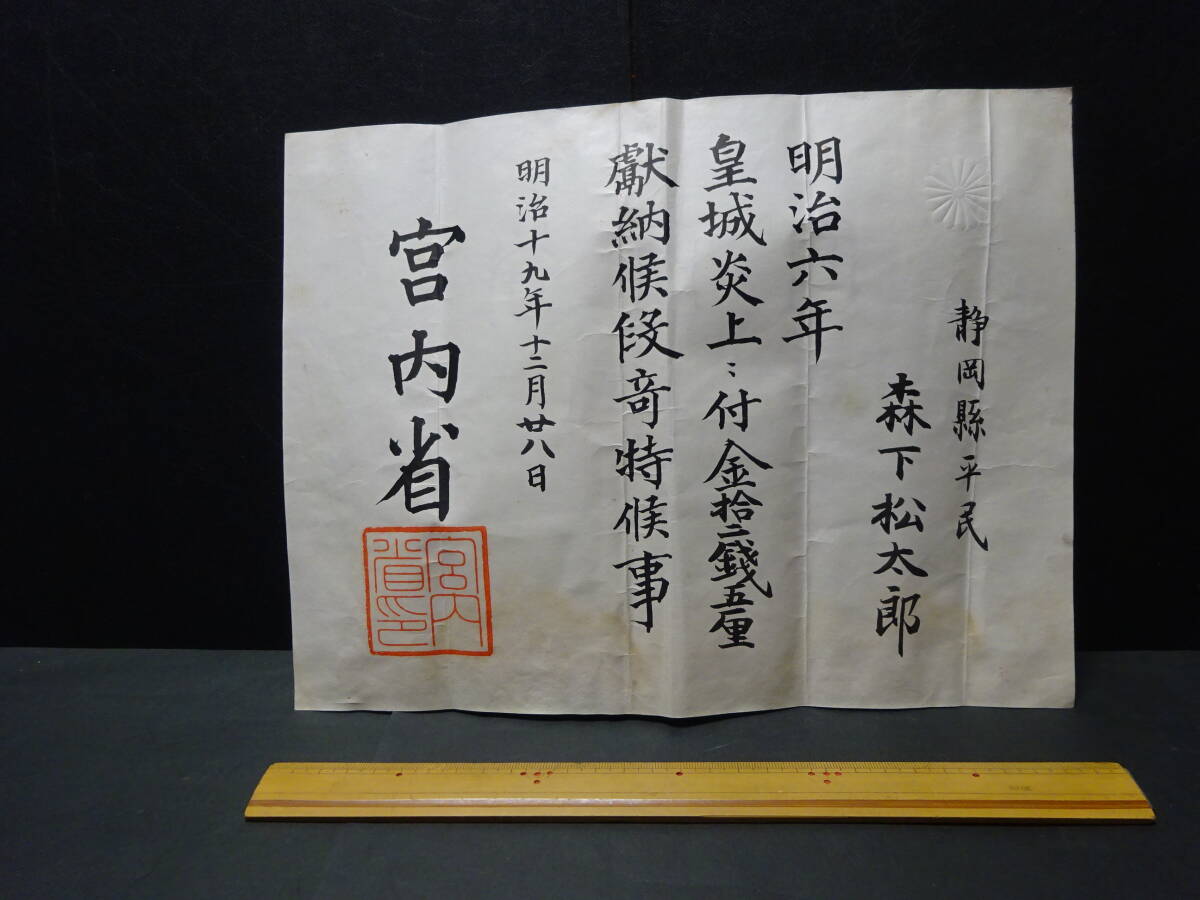 静岡縣平民
森下松太郎
明治六年
皇城炎上ニ付金拾二錢五厘
獻納候段竒特候事
明治十九年十二月廿八日
宮内省
宮内
省印